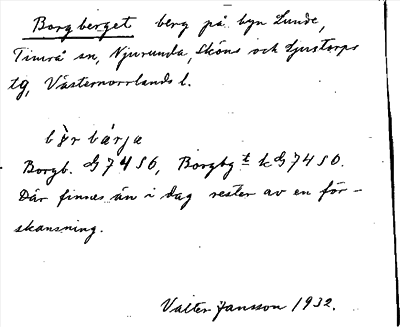 Borgberget berg på byn Lunde,
Timrå sn, Njurunda, Sköns och Ljustorps
tg, Västernorrlands l.
bǫ̀r bærja
Borgb. G 7456, Borgbg t k G 7450.
Där finnes än i dag rester av en för-
skansning.
Valter Jansson 1932.